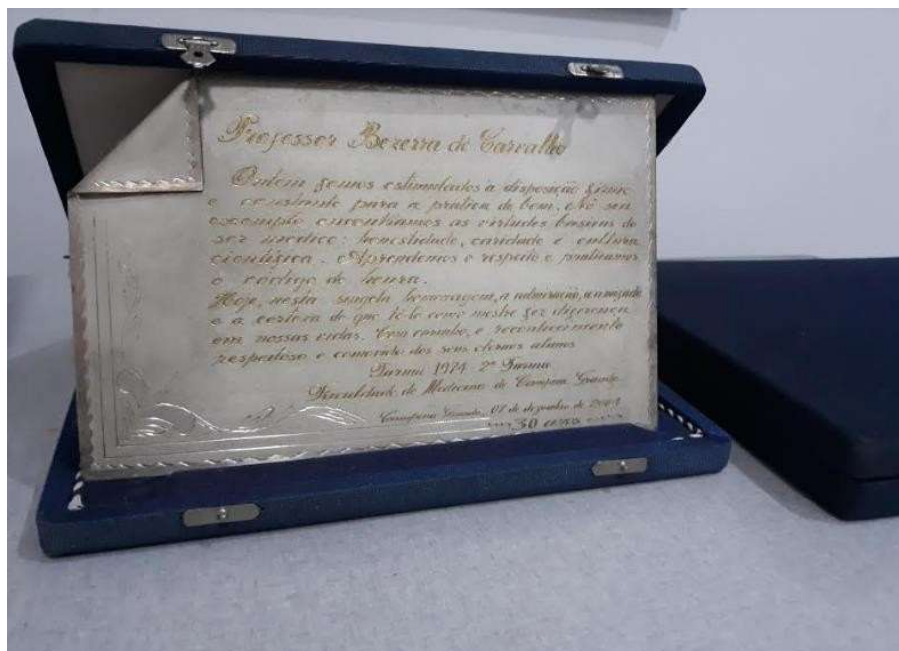 Professor Bezerra de Carvalho
Ontem fomos estimulados à disposição firme
e constante para a prática do bem. No seu
exemplo encontramos as virtudes basicas do
ser médico: honestidade, caridade e cultura
científica. Aprendemos o respeito e praticamos
o código de honra.
Hoje, nesta singela homenagem, a admiração, a amizade
e a certeza de que tê-lo como mestre fez diferença
em nossas vidas. Com carinho, o reconhecimento
respeitoso e comovido dos seus eternos alunos
Turma 1974 - 2ª Turma
Faculdade de Medicina de Campina Grande
Campina Grande, 07 de dezembro de 2004
30 anos